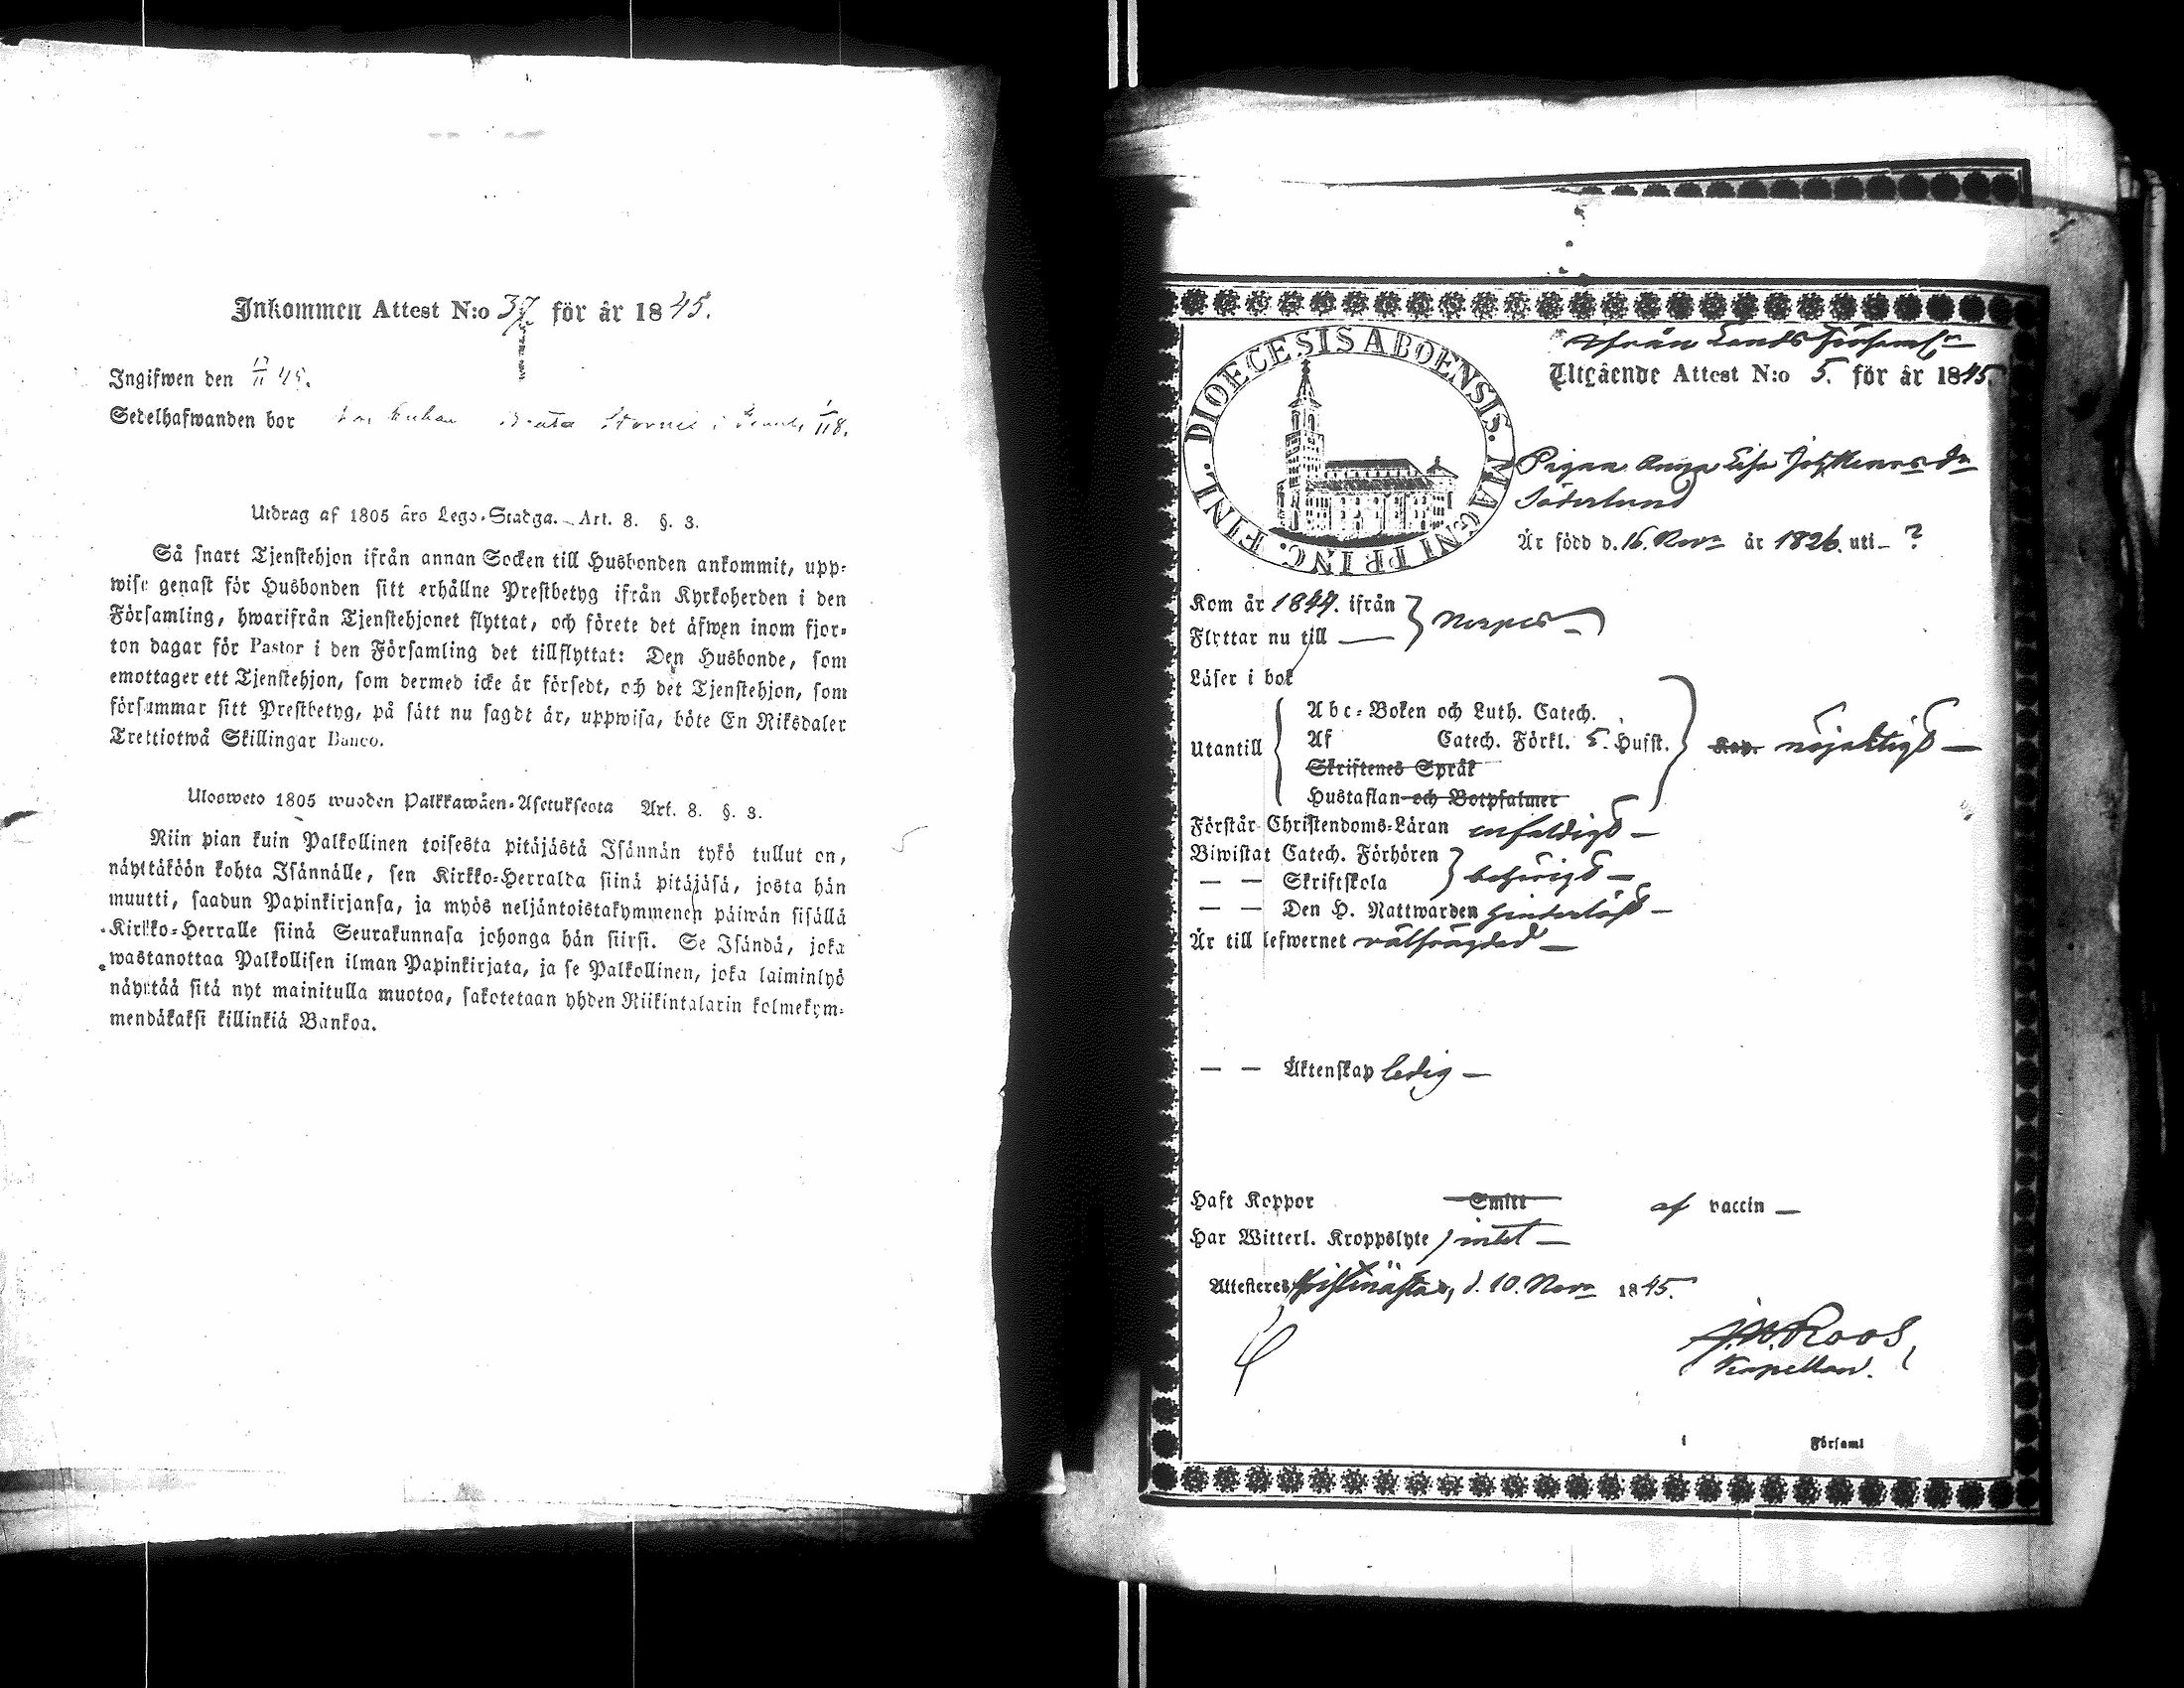 Inkommen Attest N:o 37 för år 1845.
Ingifwen den 17/11 45.
Sedelhafwanden bor hos Enkan Beata i
Utdrag af 1805 års Lego-Stadga. Art. 8. §. 3.
Så snart Tjenstehjon ifrån annan Socken till Husbonden ankommit, upp-
wise genast för Husbonden sitt erhållne Prestbetyg ifrån Kyrkoherden i den
Församling, hwarifrån Tjenstehjonet flyttat, och förete det äfwen inom fjor-
ton dagar för Pastor i den Församling det tillflyttat: Den Husbonde, som
emottager ett Tjenstehjon, som dermed icke är försedt, och det Tjenstehjon, som
försummar sitt Prestbetyg, på sätt nu sagdt är, uppwisa, böte En Riksdaler
Trettiotwå Skillingar Banco.
Ulosweto 1805 wuoden Palkkawäen-Asetuksesta Art. 8. §. 3.
Niin pian kuin Palkollinen toisesta pitäjästä Isännän tykö tullut on,
näyttäköön kohta Isännälle, sen Kirkko-Herralda siinä pitäjäsä, josta hän
muutti, saadun Papinkirjansa, ja myös neljäntoistakymmenen päiwän sisällä
Kirkko-Herralle siinä Seurakunnasa johonga hän siirsi. Se Isändä, joka
wastanottaa Palkollisen ilman Papinkirjata, ja se Palkollinen, joka laiminlyö
näyttää sitä nyt mainitulla muotoa, sakotetaan yhden Riikintalarin kolmekym-
mendäkaksi killinkiä Bankoa.
DIOECESIS ABOENSIS. MAGNI PRINC. FINL.
ifrån Lands Församl:n
Utgående Attest N:o 5. för år 1845.
Pigan Anna Lisa
Söderlund
Är född d. 16. Nov:r år 1826. uti ?
Kom år 1844. ifrån } Nerpes
Flyttar nu till
Läser i bok
Utantill
Abc-Boken och Luth. Catech.
Af Catech. Förkl. 5. Hufst. nöjaktigt
Skriftenes Språk
Hustaflan och Botpsalmer
Förstår Christendoms-Läran enfaldigt
Biwistat Catech. Förhören } behörigt
— — Skriftskola
— — Den H. Nattwarden
Är till lefwernet välfrägdad
— — Äktenskap ledig
Haft Koppor Smitt af vaccin
Har Witterl. Kroppslyte intet
Attesteres Christinästad, d. 10. Nov:r 1845.
Roos,
Kapellan.
i Församl